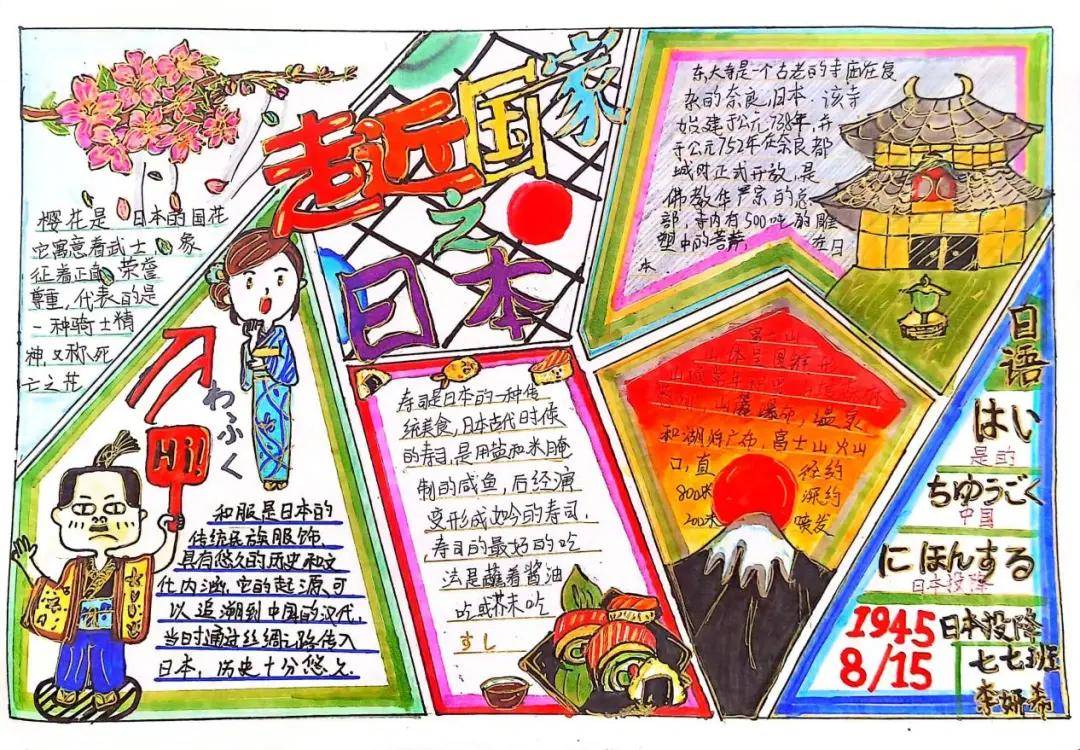 走近国家
之
日本
樱花是 日本的国花
它寓意着武士 象
征着正直 荣誉
尊重,代表的是
一种骑士精
神,又称死
亡之花
わふく
Hi!
和服是日本的
传统民族服饰,
具有悠久的历史和文
化内涵,它的起源可
以追溯到中国的汉代,
当时通过丝绸之路传入
日本,历史十分悠久
寿司是日本的一种传
统美食,日本古代时候
的寿司,是用盐和米腌
制的咸鱼,后经演
变形成如今的寿司,
寿司的最好的吃
法是蘸着酱油
吃或芥末吃
すし
东大寺是一个古老的寺庙在复
杂的奈良,日本.该寺
始建于公元738年,并
于公元752年在奈良都
城时正式开放,是
佛教华严宗的总
部,寺内有500吨的雕
塑中的菩萨, 在日
本.
山体呈圆锥形
山麓瀑布,温泉
和湖泊广布,富士山火山
口,直 径约
800米 深约
200米 喷发
日语
はい
是的
ちゆうごく
中国
にほんする
日本投降
1945 日本投降
8/15
七七班
李妍希